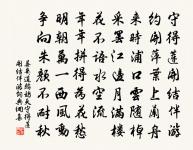 守得蓮開結伴遊
約開萍葉上蘭舟
來時浦口雲隨棹
采罷江邊月滿樓
花不語水空流
年年拚得為花愁
明朝萬一西風動
爭向朱顏不耐秋
晏幾道鷓鴣天守得蓮
開結伴遊